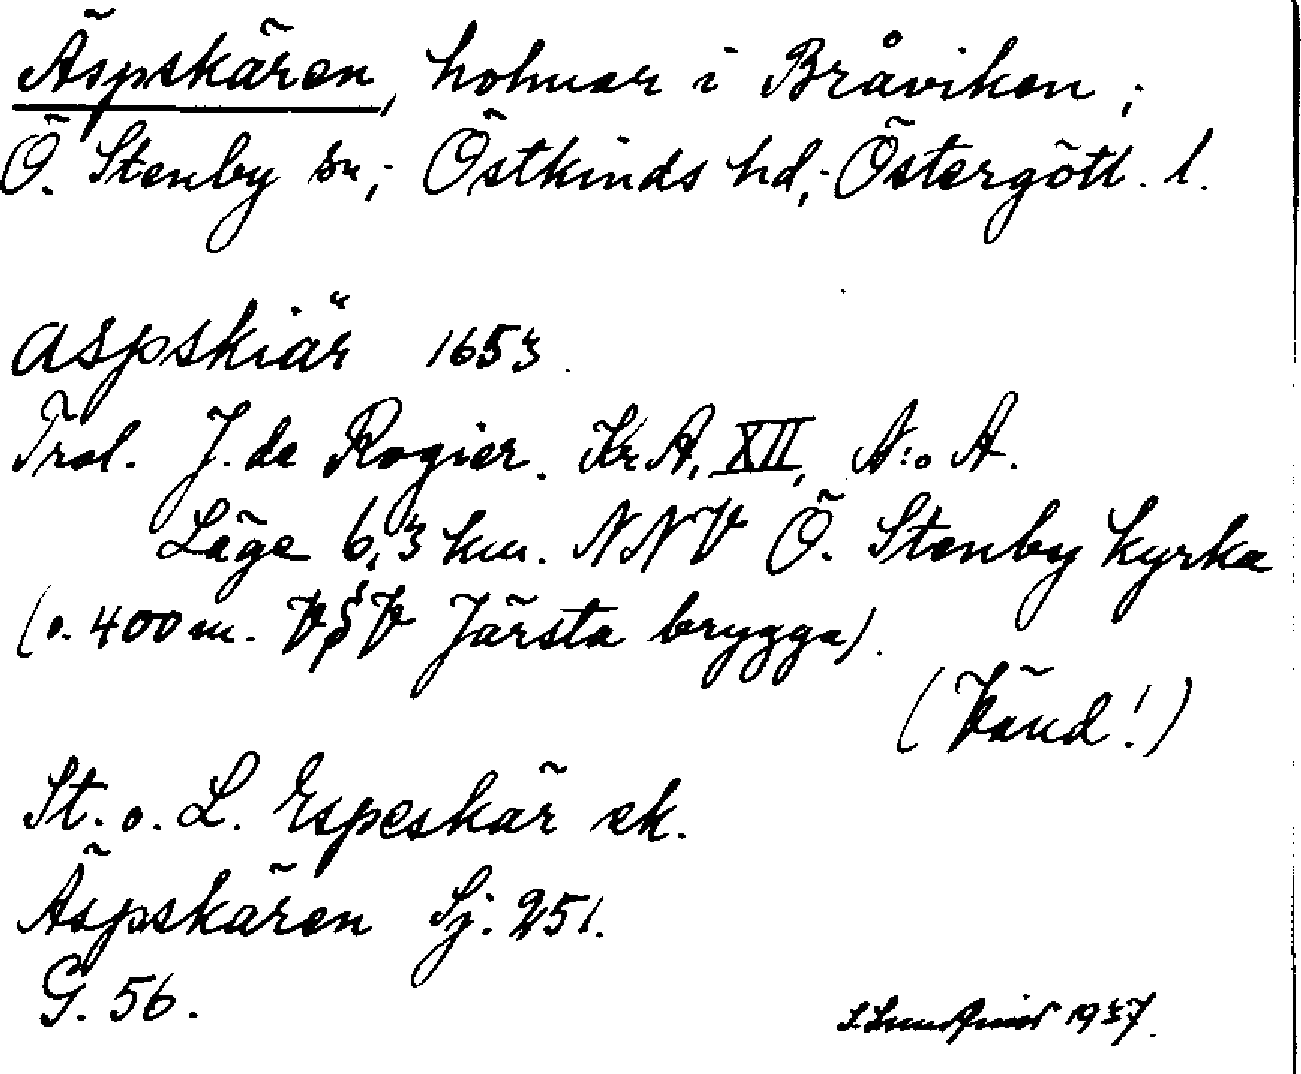 Äspskären, holmar i Bråviken;
Ö. Stenby sn; Östkinds hd; Östergötl. l.
Aspskiär 1653.
Trol. J. de Rogier. Kr.A. XII, N:o A.
Läge 6,3 km. NNV Ö. Stenby kyrka
(o. 400 m. VSV Järsta brygga).
(Vänd!)
St. o. L. Espeskär ek.
Äspskären Sj. 251.
G. 56.
1937.